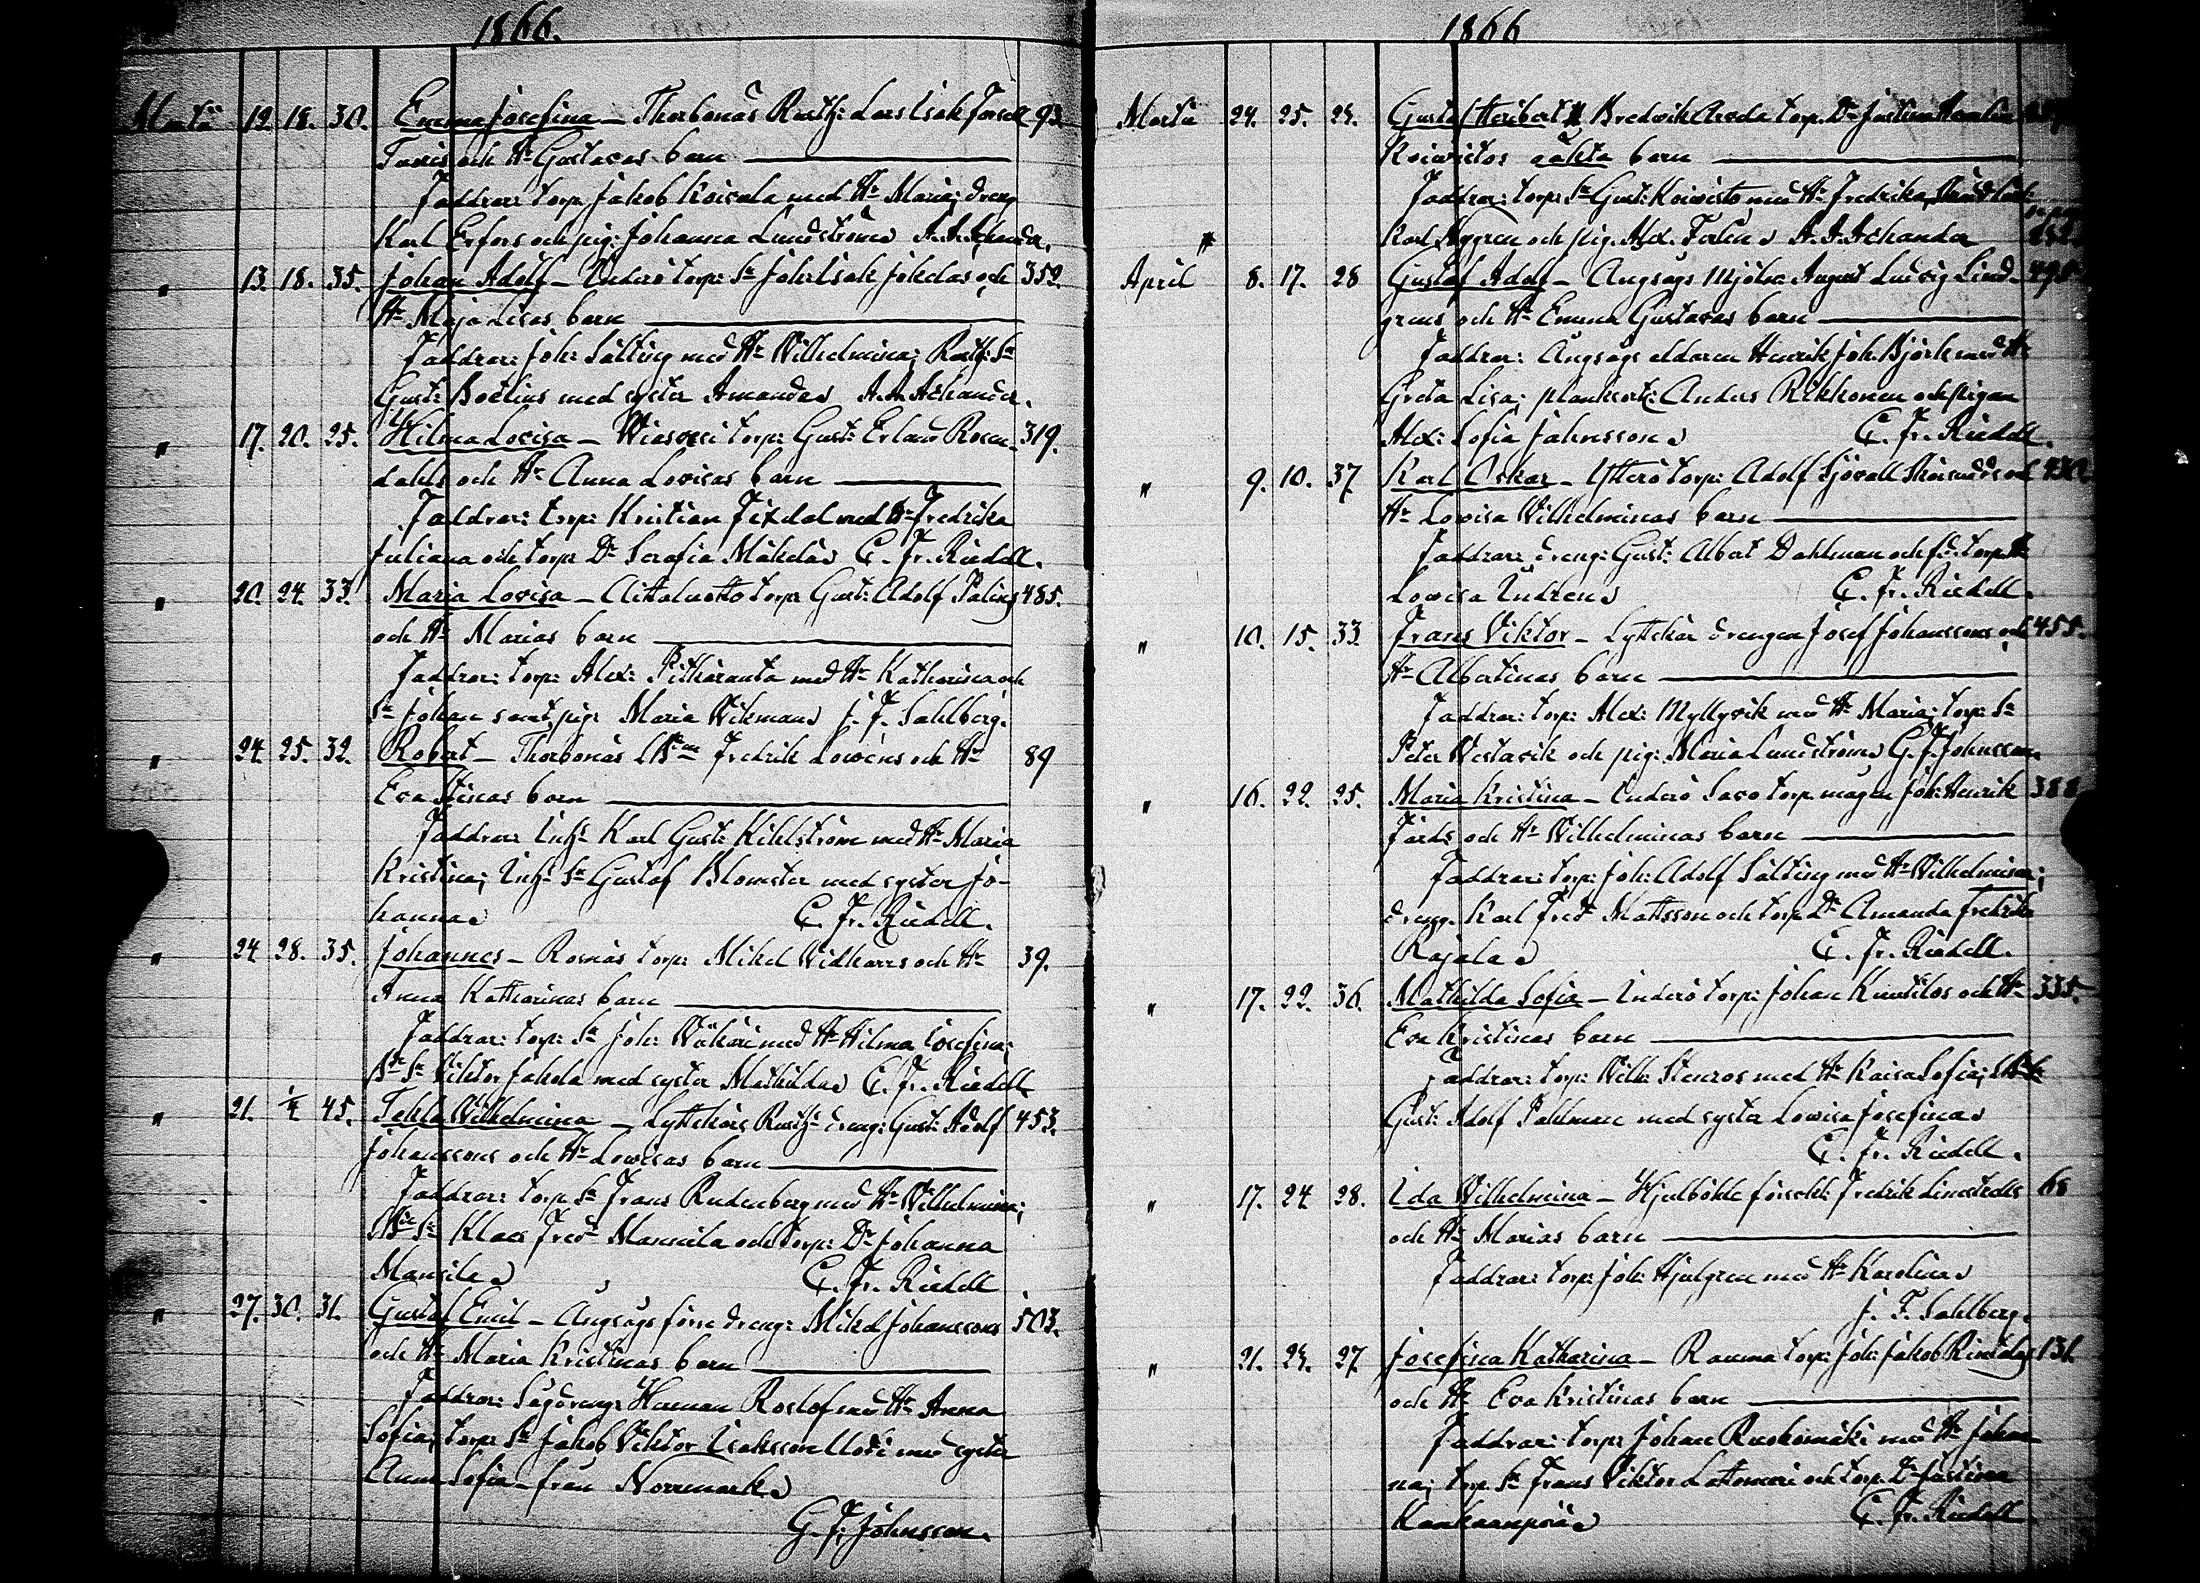 1866.
12. 18. 30. Emma Josefina – Thorbonäs Rusth: Lars Isak 93.
och Hu Gustavas barn
Faddrar: torp. Jakob Koivula med Hu Maria; dreng
Karl Erfors och pig: Johanna Lundströms A. A. Achander.
" 13. 18. 35. Johan Adolf – Inderö torp: Sn Joh: Isak och 352.
Hu Maja Lisas barn
Faddrar: Joh: Sälting med Hu Wilhelmina; Rusth: Sn
Gust: Boelius med syster Amanda A. A. Achander.
" 17. 20. 25. Hilma Lovisa – torp: Gust: Erland Rosen- 319.
dahls och Hu Anna Lovisas barn
Faddrar: torp: Kristian med Hu Fredrika
Juliana och torp: Dr Serafia Mäkelä C. Fr. Riedell.
" 20. 24. 33. Maria Lovisa – Aittaluotto torp: Gust: Adolf Palins 485.
och Hu Marias barn
Faddrar: torp: Alex: Pitkäranta med Hu Katharina och
Sn Johan samt pig: Maria Wikman J. F. Sahlberg.
" 24. 25. 32. Robert – Thorbonäs Fredrik Lovéns och Hu 89
Eva Stinas barn
Faddrar: Inh: Karl Gust: Kihlström med Hu Maria
Kristina; Inh: Sn Gustaf Blomster med syster Jo-
hanna C. Fr. Riedell.
" 24. 28. 35. Johannes – Rosnäs torp: Mikel och Hu 39.
Anna Katharinas barn
Faddrar: torp: Sn Joh: med Hu Hilma Josefina;
Sn Viktor Jakola med syster Mathilda C. Fr. Riedell
" 21. 1/4 45. Tekla Wilhelmina – Lyttskärs Rusth: dreng: Gust: Adolf 453.
Johanssons och Hu Lovisas barn
Faddrar: torp: Sn Frans Rudenberg med Hu Wilhelmina;
Sn Klaes Fred: Mansila och torp: Dr Johanna
Mansila C. Fr. Riedell
" 27. 30. 31. Gustaf Emil – Ångsågs före dreng: Mikel Johanssons 503.
och Hu Maria Kristinas barn
Faddrar: Sågdreng: Herman Roslof med Hu Anna
Sofia; torp: Sn Jakob Viktor Isaksson med syster
Anna Sofia – från Norrmark
G. F. Johnsson.
1866
24. 25. 24. Gustaf Heribert Bredvik torp. Dr Justina
Koivistos oäkta barn
Faddrar: torp: Sn Gust: Koivisto med Hu Fredrika,
Karl Nygren och pig. Alex. A. A. Achander
April 8. 17. 28 Gustaf Adolf – Ångsågs Mjöln: August Ludvig Lind-
grens och Hu Emma Gustavas barn
Faddrar: Ångsågs eldaren Henrik Joh. Björk med Hu
Greta Lisa; Anders Rikkonen och pigan
Alex: Sofia Johnsson C. Fr. Riedell.
" 9. 10. 37 Karl Oskar – Ytterö torp: Adolf Sjövall
Hu Lovisa Wilhelminas barn
Faddrar: dreng: Gust: Albert Dahlman och torp: Hu
Lovisa C. Fr. Riedell.
" 10. 15. 33. Frans Viktor – Lyttskär drengen Josef Johanssons och 455.
Hu Albertinas barn
Faddrar: torp: Alex: Myllyvik med Hu Maria; torp: Sn
Peter Westavik och pig: Maria Lundström G. F. Johnsson.
" 16. 22. 25. Maria Kristina – Inderö Savo torp. mågen Joh: Henrik 388
Färds och Hu Wilhelminas barn
Faddrar: torp: Joh: Adolf Sälting med Hu Wilhelmina;
dreng. Karl Fred: Mattsson och torp: Dr Amanda Fredrika
Rajala C. Fr. Riedell.
" 17. 22. 36. Mathilda Sofia – Inderö torp: Johan och Hu 335.
Eva Kristinas barn
Faddrar: torp: Wilh: Stenros med Hu Kaisa Sofia;
Gust: Adolf Pahlman med syster Lovisa Josefina
C. Fr. Riedell.
" 17. 24 28. Ida Wilhelmina – Hjulböhle Fredrik Limstedts 68
och Hu Marias barn
Faddrar: torp: Joh: Hjulgren med Hu Karolina
J. F. Sahlberg.
" 21. 24. 27 Josefina Katharina – Rauma torp: Joh: Jakob 131.
och Hu Eva Kristinas barn
Faddrar: torp: Johan Ruohomäki med Hu Johan-
na; torp: Sn Frans Viktor Lattomeri och torp. Dr Justina
Kankaanpää C. Fr. Riedell